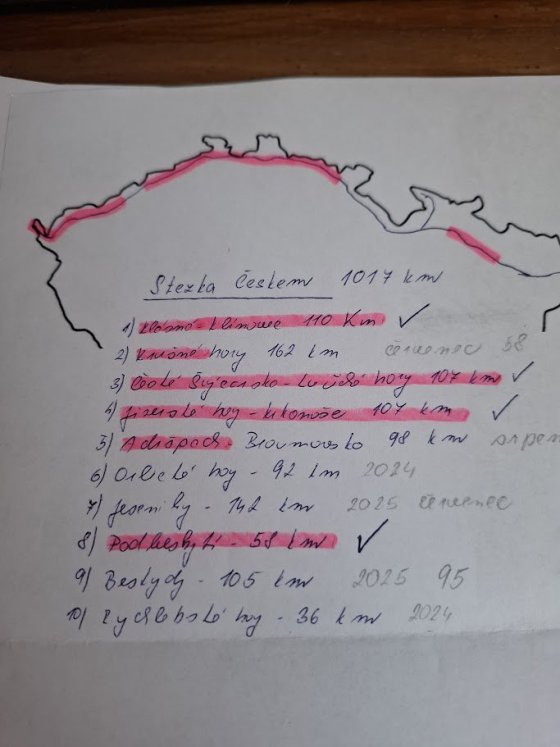 Stezka Českem 1017 km
1) Ašsko - Klínovec 110 Km ✓
2) Krušné hory 162 km červenec 58
3) České Švýcarsko - Lužické hory 107 km ✓
4) Jizerské hory - Krkonoše 107 km ✓
5) Adršpach - Broumovsko 98 km srpen
6) Orlické hory - 92 km 2024
7) Jeseníky - 142 km 2025 červenec
8) Podbeskydí - 58 km ✓
9) Beskydy - 105 km 2025 95
10) Rychlebské hory - 36 km 2024